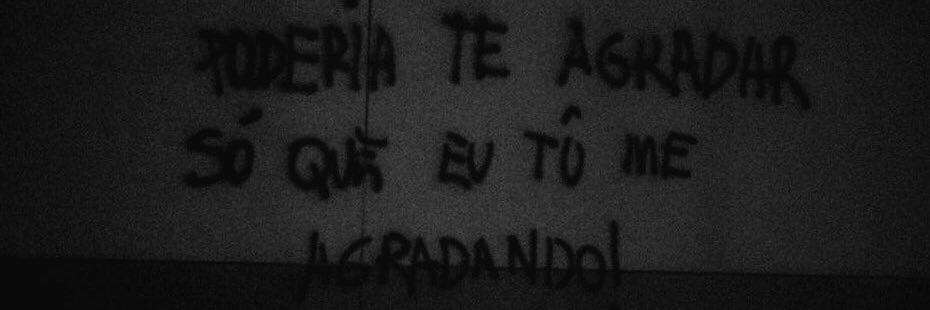 PODERIA TE AGRADAR
SÓ QUE EU TÔ ME
AGRADANDO!